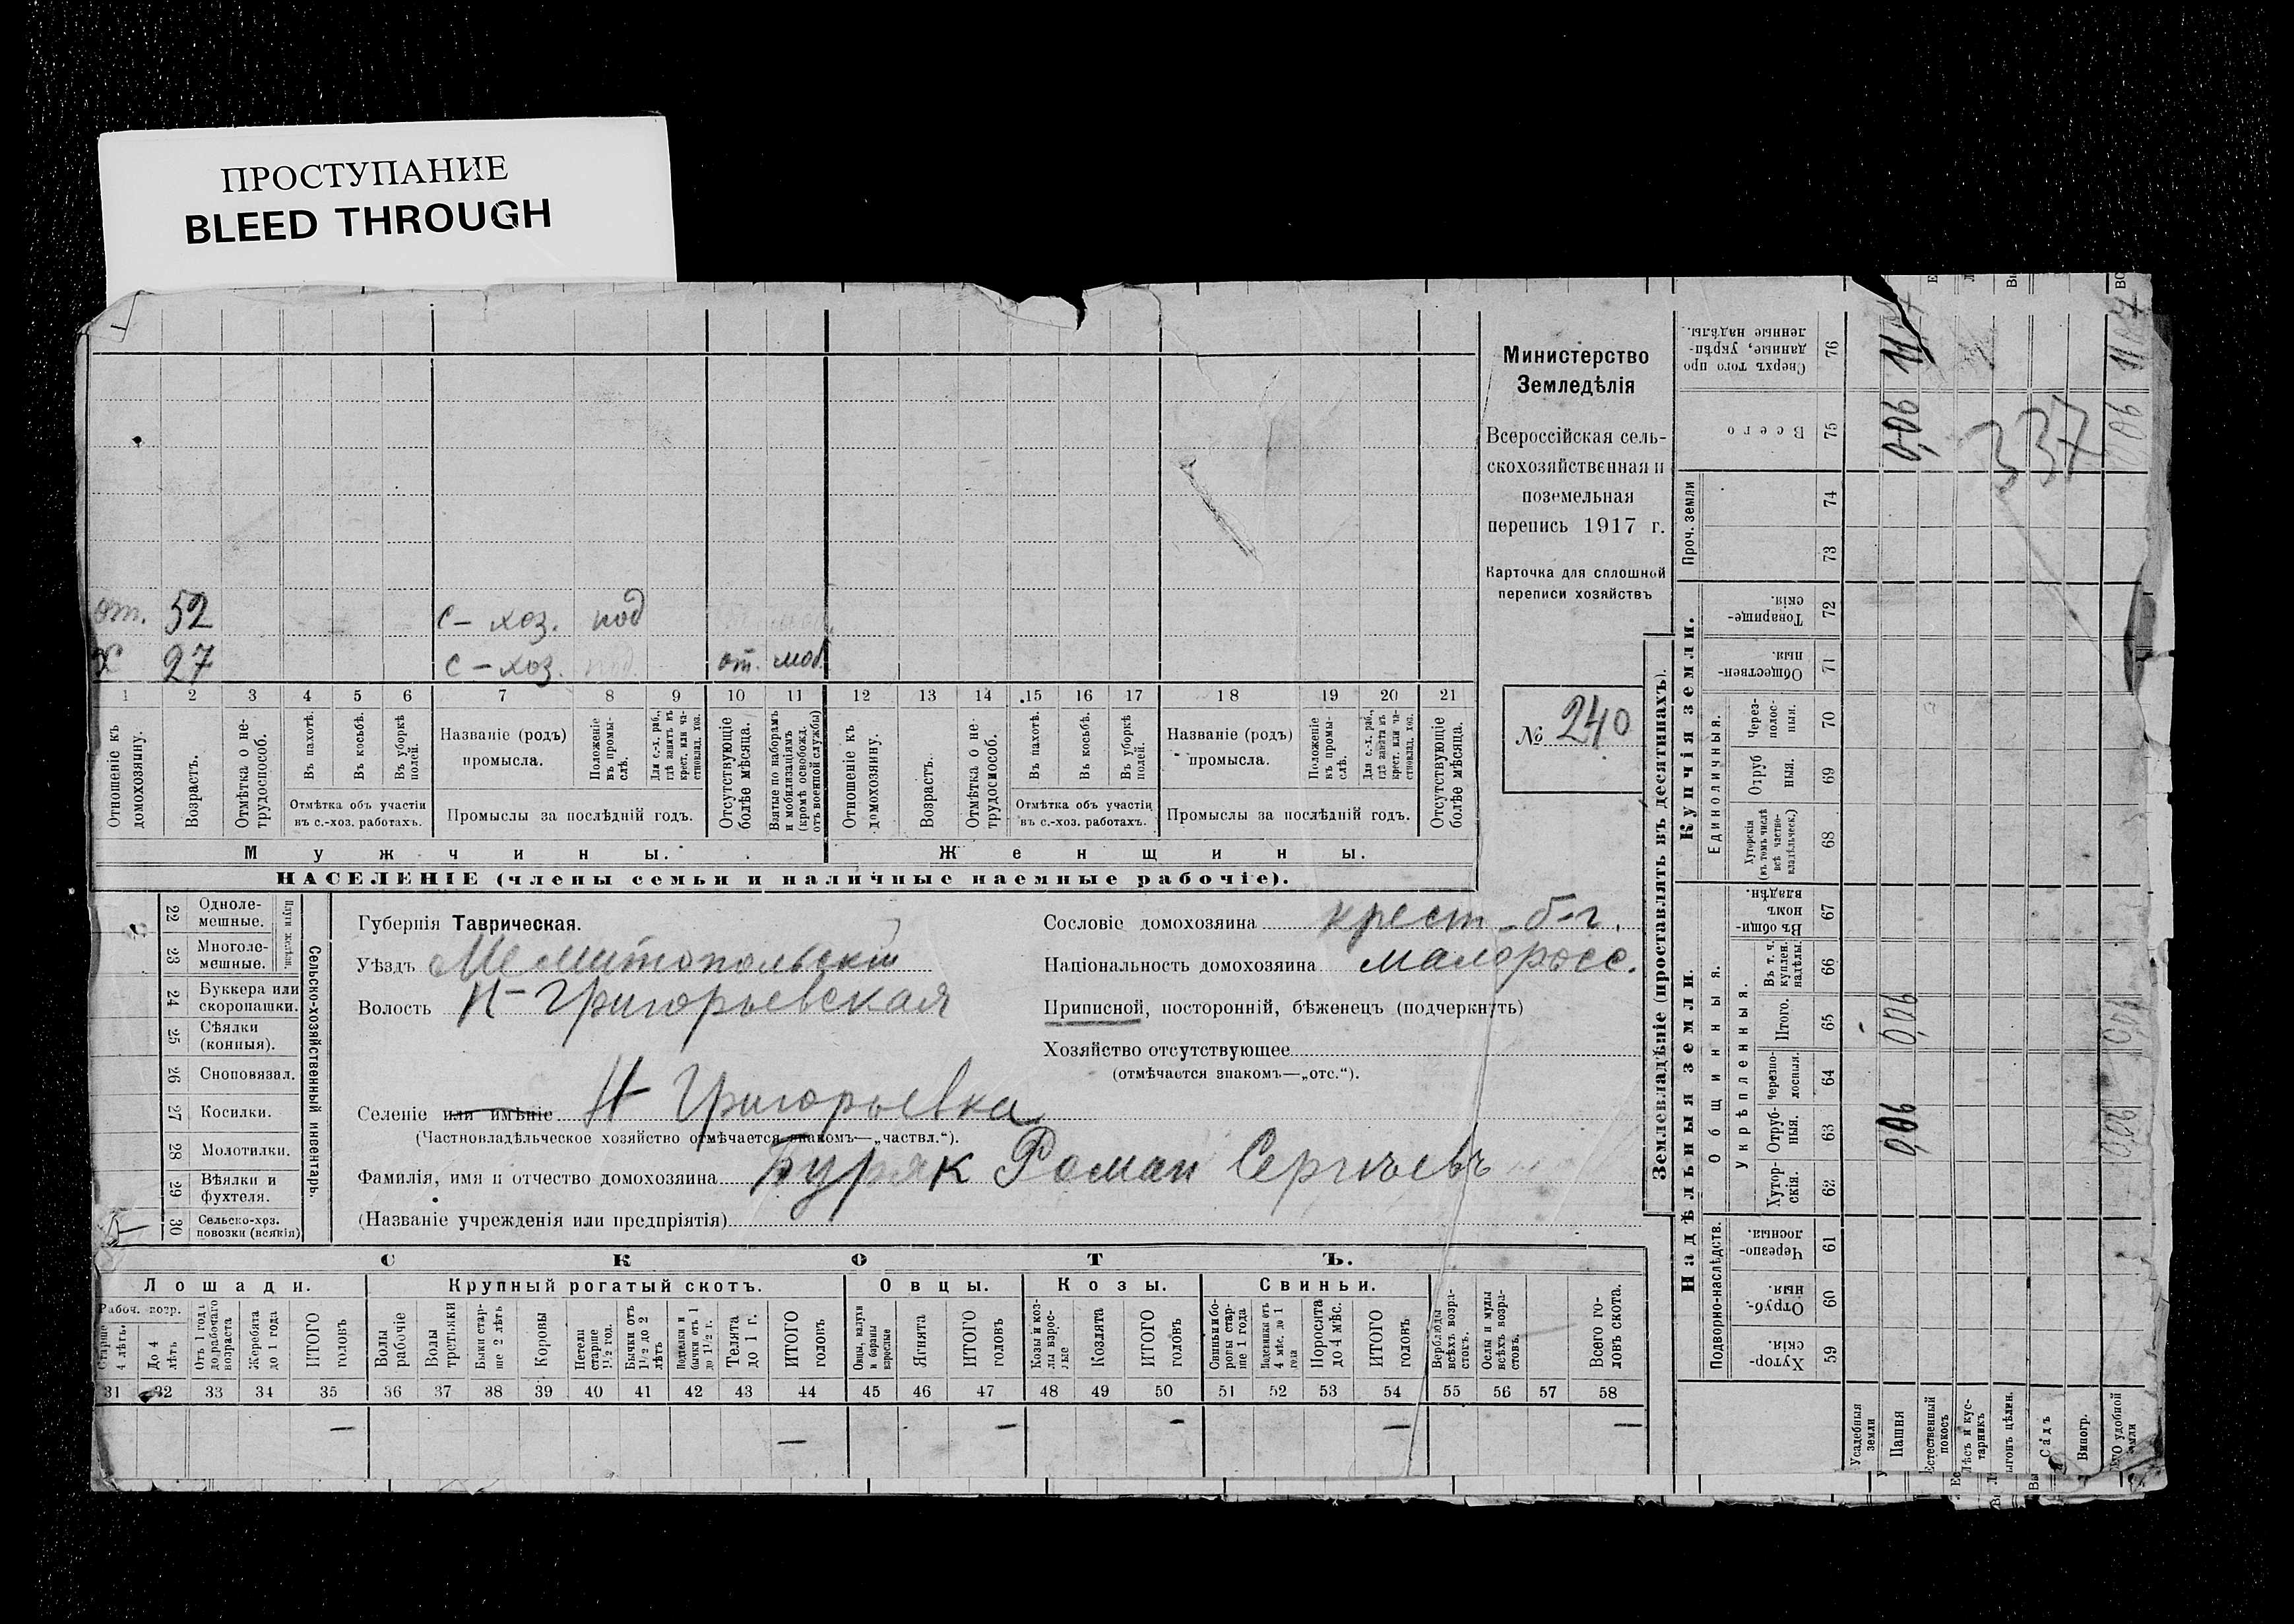 ПРОСТУПАНИЕ
BLEED THROUGH
от. 52 с-хоз. под
х 27 с-хоз. под. от. моб.
1 2 3 4 5 6 7 8 9 10 11 12 13 14 15 16 17 18 19 20 21
Отношеніе къ домохозяину.
Возрастъ.
Отмѣтка о нетрудоспособ.
Въ пахотѣ.
Въ косьбѣ.
Въ уборкѣ полей.
Отмѣтка объ участіи въ с.-хоз. работахъ.
Названіе (родъ) промысла.
Положеніе въ промыслѣ.
Для с.-х. раб., гдѣ занятъ въ крест. или частновлад. хоз.
Промыслы за послѣдній годъ.
Отсутствующіе болѣе мѣсяца.
Взятые по наборамъ и мобилизаціямъ (кромѣ освобожд. отъ военной службы)
Отношеніе къ домохозяину.
Возрастъ.
Отмѣтка о нетрудоспособ.
Въ пахотѣ.
Въ косьбѣ.
Въ уборкѣ полей.
Отмѣтка объ участіи въ с.-хоз. работахъ.
Названіе (родъ) промысла.
Положеніе въ промыслѣ.
Для с.-х. раб., гдѣ занята въ крест. или частновлад. хоз.
Промыслы за послѣдній годъ.
Отсутствующіе болѣе мѣсяца.
Мужчины.
Женщины.
НАСЕЛЕНІЕ (члены семьи и наличные наемные рабочіе).
Министерство
Земледѣлія
Всероссійская сель-
скохозяйственная и
поземельная
перепись 1917 г.
Карточка для сплошной
переписи хозяйствъ
№ 240
Сельско-хозяйственный инвентарь.
Плуги желѣзн.
22 Одноле-мешные.
23 Многоле-мешные.
24 Буккера или скоропашки.
25 Сѣялки (конныя).
26 Сноповязал.
27 Косилки.
28 Молотилки.
29 Вѣялки и фухтеля.
30 Сельско-хоз. повозки (всякія)
Губернія Таврическая.
Уѣздъ Мелитопольскій
Волость Н-Григорьевская
Селеніе или имѣніе Н Григорьевка
(Частновладѣльческое хозяйство отмѣчается знакомъ—„частвл.“).
Фамилія, имя и отчество домохозяина Буряк Роман Сергѣевъ
(Названіе учрежденія или предпріятія)
Сословіе домохозяина крест. б-г.
Національность домохозяина малоросс.
Приписной, посторонній, бѣженецъ (подчеркнуть)
Хозяйство отсутствующее
(отмѣчается знакомъ—„отс.“).
СКОТЪ.
Лошади. Крупный рогатый скотъ. Овцы. Козы. Свиньи.
Рабоч. возр.
Старше 4 лѣтъ.
До 4 лѣтъ
Отъ 1 года до рабочаго возраста
Жеребята до 1 года
ИТОГО головъ
Волы рабочіе
Волы третьяки
Быки старше 2 лѣтъ
Коровы
Нетели старше 1½ год.
Бычки отъ 1½ до 2 лѣтъ
Подтелки и бычки отъ 1 до 1½ г.
Телята до 1 г.
ИТОГО головъ
Овцы, валухи и бараны взрослые
Ягнята
ИТОГО головъ
Козы и козлы взрослые
Козлята
ИТОГО головъ
Свиньи и боровы старше 1 года
Подсвинки отъ 4 мѣс. до 1 года
Поросята до 4 мѣс.
ИТОГО головъ
Верблюды всѣхъ возрастовъ.
Ослы и мулы всѣхъ возрастовъ.
Всего головъ скота.
31 32 33 34 35 36 37 38 39 40 41 42 43 44 45 46 47 48 49 50 51 52 53 54 55 56 57 58
— — — — — —
Землевладѣніе (проставлять въ десятинахъ).
Надѣльныя земли.
Купчія земли.
Проч. земли
Подворно-наслѣдств.
Общинныя.
Укрѣпленныя.
Единоличныя.
59 Хутор-скія.
60 Отруб-ныя.
61 Черезпо-лосныя.
62 Хутор-скія.
63 Отруб-ныя.
64 Черезпо-лосныя.
65 Итого.
66 Въ т. ч. куплен. надѣлы.
67 Въ общи-номъ владѣн.
68 Хуторскія (въ томъ числѣ всѣ частно-владѣльческ.)
69 Отруб ныя.
70 Через-полос-ныя.
71 Обществен-ныя.
72 Товарище-скія.
73
74
75 Всего
76 Сверхъ того про данные, укрѣп-ленные надѣлы.
Усадебныя земли
Пашня 0,06 0,06 0,06 11,04
Естественный покосъ
Лѣсъ и кус-тарникъ
Выгонъ цѣлин.
Садъ
Виногр.
ИТОГО удобной земли 0,06 0,06 0,06 11,04
337